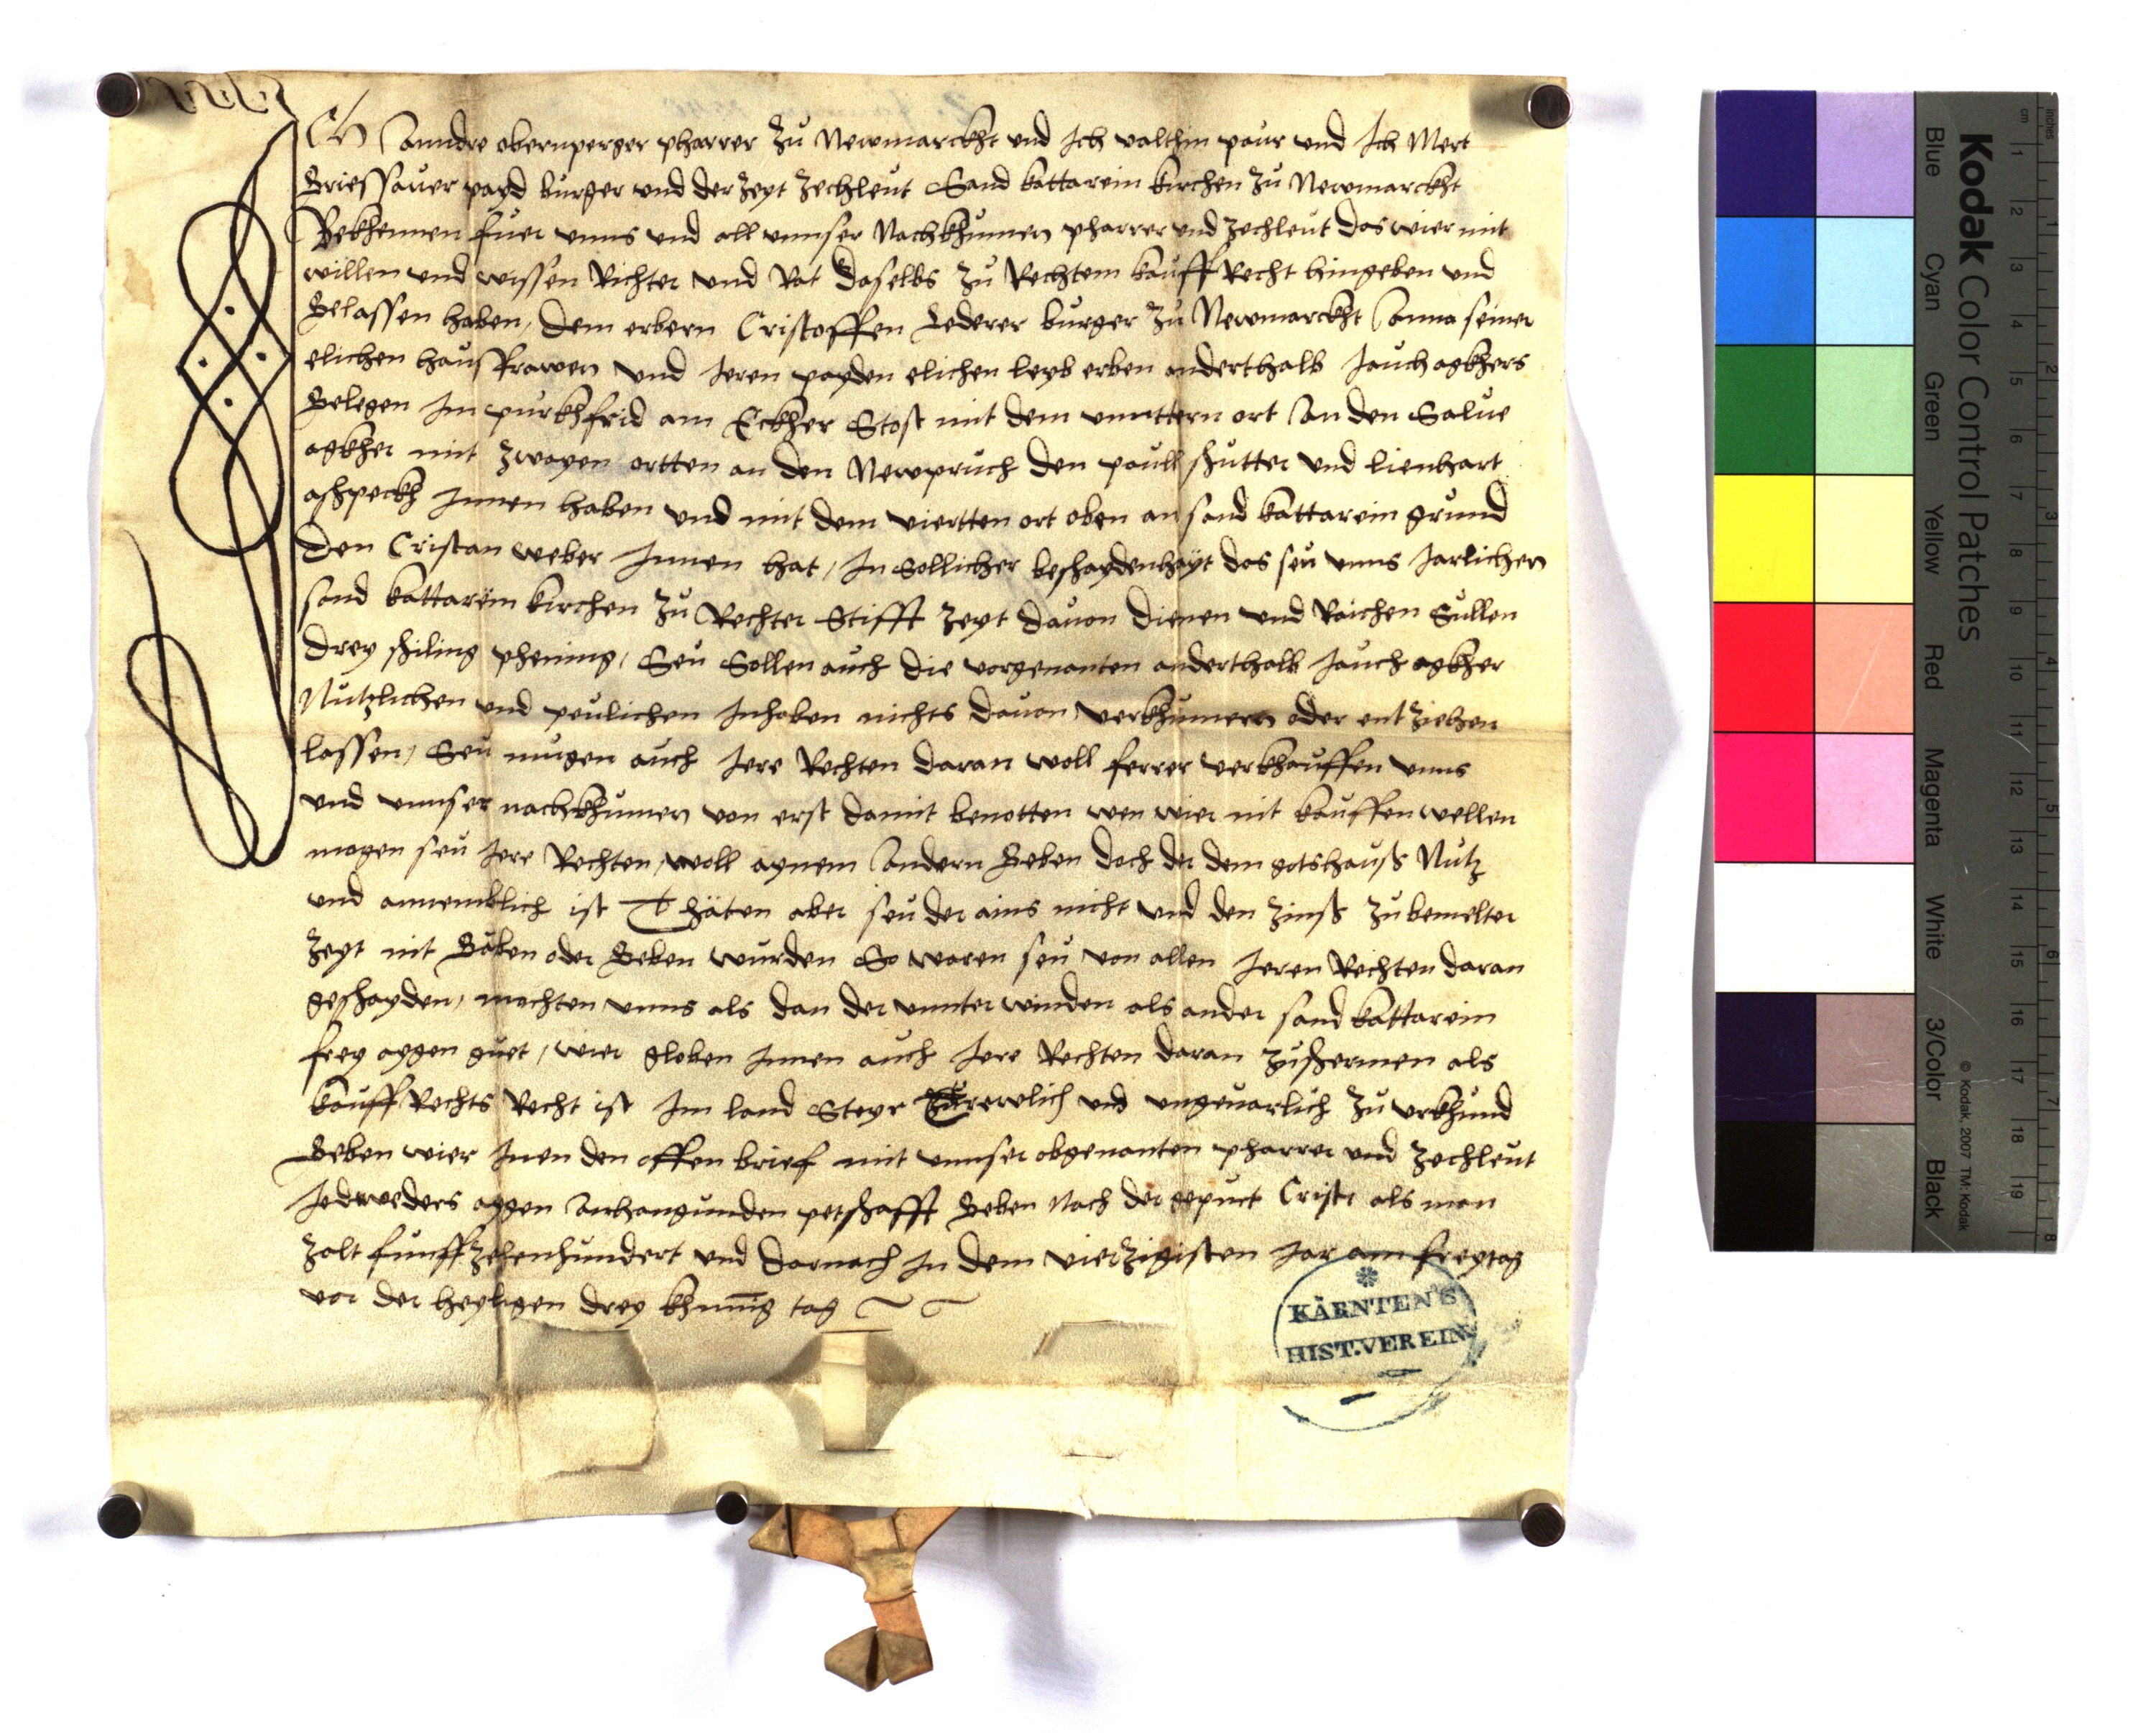 Ich Anndre obernperger pharrer zu Newmarckht und Ich valthin paur und Ich Mert
Griessauer payd burger und der zeyt zechleut Sand kattarein kirchen zu Newmarckht
Bekhennen fuer unns und all unnser Nachkhumen pharrer und zechleut das wier mit
willen und wissen Richter und Rat daselbs zu Rechtem kauff Recht hingeben und
Gelassen haben, dem erbern Cristoffen Lederer burger zu Newmarckht Anna seiner
elichen hausfrawen und Jeren payden elichen leyb erben anderthalb Jauch agkhers
Gelegen Im purkhfrid am Eckher Stost mit dem unnttern ort An den Salue
agkher mit zwayen ortten an den Newpruch den paull shutter und lienhart
ashpeckh Innen haben und mit dem viertten ort oben an sand kattarein grund
den Cristan weber Innen hat, In Sollicher beshaydenhayt das seu unns Jarlichen
sand kattarein kirchen zu Rechter Stifft zeyt dauon dienen und Raichen Sullen
drey shiling phening, Seu Sollen auch die vorgenanten anderthalb Jauch agkher
Nutzlichen und peulichen Inhaben nichts dauon verkhumern oder entziehen
lassen, Seu mugen auch Jere Rechten daran woll ferrer verkhauffen unns
und unnser nachkhumen von erst damit benotten wen wier nit kauffen wellen
mogen seu Jere Rechten woll aynem Andern Geben doch der dem gotshauss Nutz
und annemblich ist Thäten aber seu der ains nicht und den zinss zu bemelter
zeyt nit Gäben oder Geben wurden So waren seu von allen Jeren Rechten daran
geshayden, mochten unns als dan der unnter winden als ander sand kattarein
frey aygen guet, wier globen Innen auch Jere Rechten daran zusshermen als
kauff Rechts Recht ist Im land Steyr Trewlich und ungeuarlich zu urkhund
Geben wier Inen den offen brief mit unnser obgenanten pharrer und zechleut
Jedweders aygen Anhangunden petshafft Geben Nach der gepurt Cristi als man
zalt funffzehenhundert und darnach In dem vierzigisten Jar am freytag
vor der heyligen drey khunig tag
KÄRNTEN'S
HIST.VEREIN
Kodak Color Control Patches
Blue Cyan Green Yellow Red Magenta White 3/Color Black
© Kodak, 2007 TM: Kodak
cm 1 2 3 4 5 6 7 8 9 10 11 12 13 14 15 16 17 18 19
inches 1 2 3 4 5 6 7 8